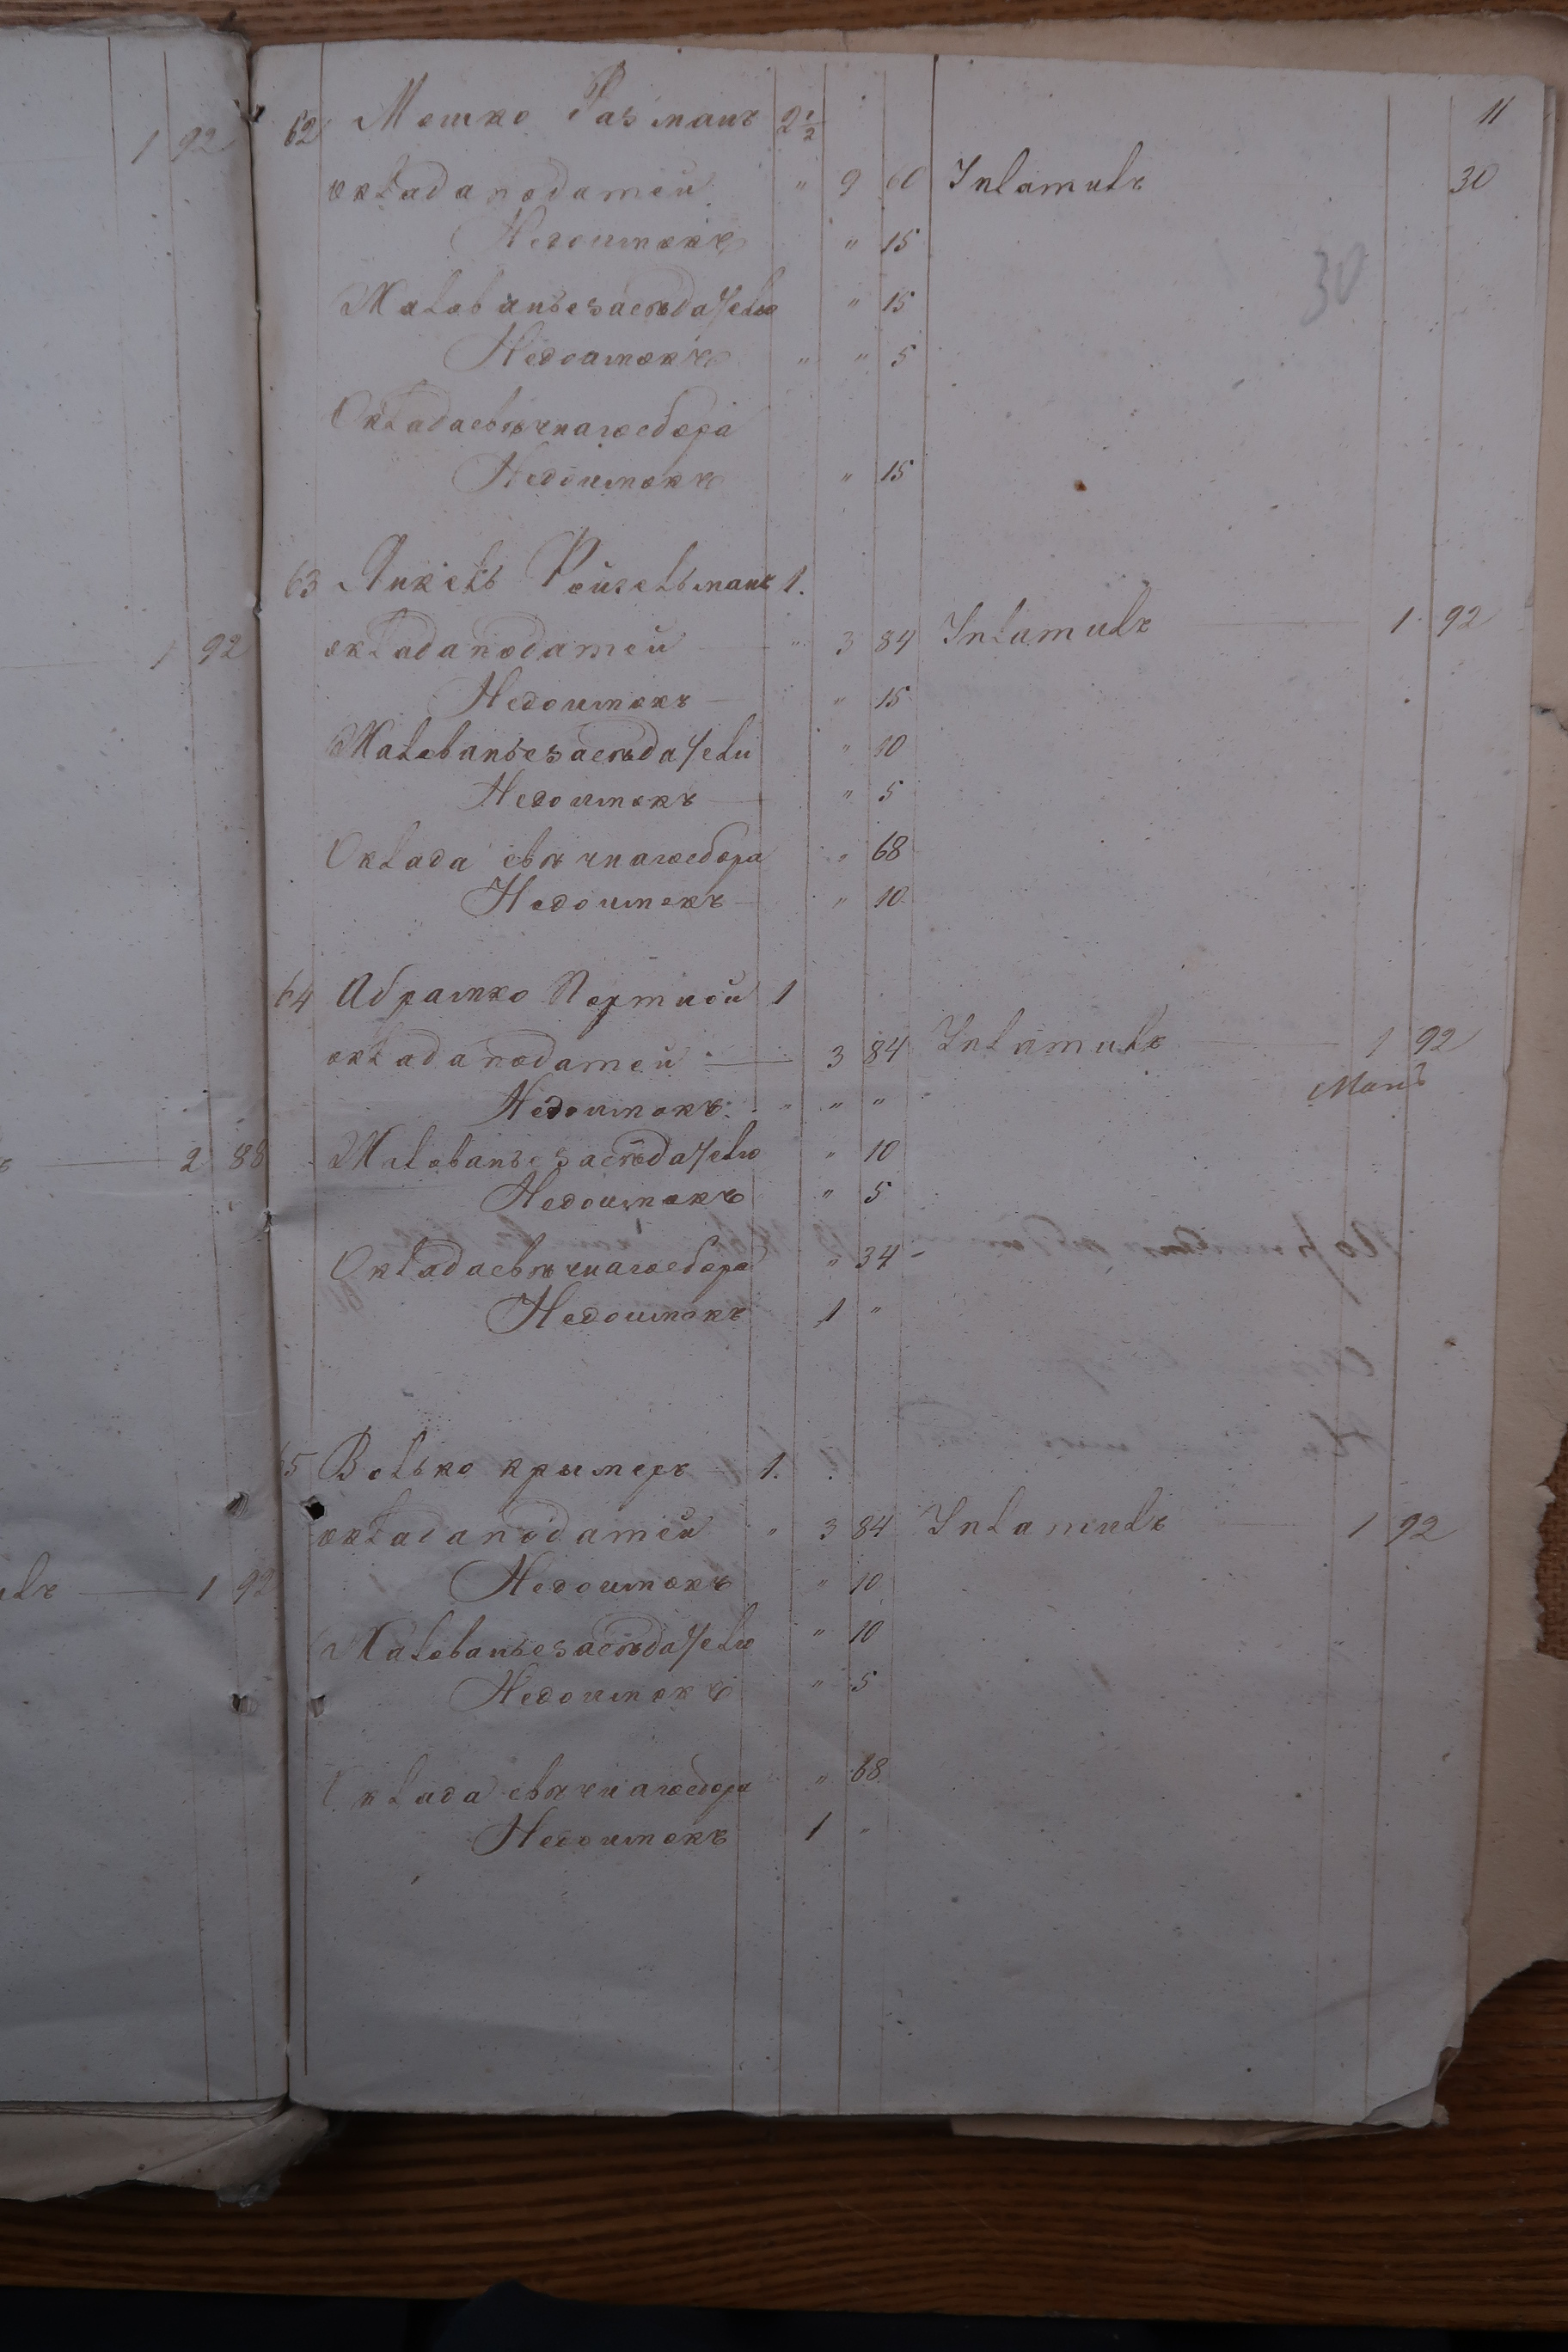 11
62 Мошко Разманъ 2 1/2
оклада податей " 9 60 Уплатилъ 30
Недоимокъ " 15
30
Жалованье засѣдателю " 15
Недоимокъ " " 5
Оклада свѣчнаго сбора
Недоимокъ " 15
63 Янкель Рейгельманъ 1.
1 92
оклада податей " 3 84 Уплатилъ 1 92
1 92
Недоимокъ " 15
Жалованье засѣдателю " 10
Недоимокъ " 5
Оклада свѣчнаго сбора " 68
Недоимокъ " 10
64 Абрамко Портной 1
оклада податей 3 84 Уплатилъ 1 92
Недоимокъ " " "
2 88 Жалованье засѣдателю " 10
Недоимокъ " 5
Оклада свѣчнаго сбора " 34
Недоимокъ 1 "
65 Волько кримеръ 1.
оклада податей " 3 84 Уплатилъ 1 92
1 92 Недоимокъ " 10
Жалованье засѣдателю " 10
Недоимокъ " 5
Оклада свѣчнаго сбора " 68
Недоимокъ 1 "